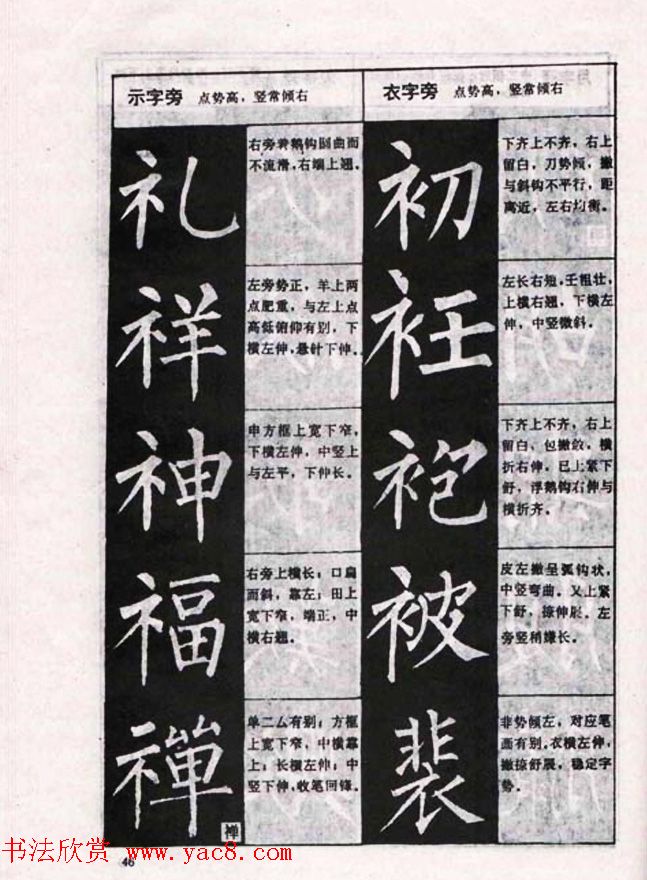 示字旁 点势高，竖常倾右
礼
右旁若鹅钩圆曲而
不流滑，右端上翘。
祥
左旁势正，羊上两
点肥重，与左上点
高低俯仰有别，下
横左伸，悬针下伸。
神
申方框上宽下窄，
下横左伸，中竖上
与左平，下伸长。
福
右旁上横长；口扁
而斜，靠左；田上
宽下窄，端正，中
横右翘。
禅
禅
单二厶有别；方框
上宽下窄，中横靠
上；长横左伸；中
竖下伸，收笔回锋。
衣字旁 点势高，竖常倾右
初
下齐上不齐，右上
留白，刀势倾，撇
与斜钩不平行，距
离近，左右均衡。
衽
左长右短，壬粗壮，
上横右翘，下横左
伸，中竖微斜。
袍
下齐上不齐，右上
留白，包撇敛，横
折右伸，巳上紧下
舒，浮鹅钩右伸与
横折齐。
被
皮左撇呈弧钩状，
中竖弯曲。又上紧
下舒，捺伸展。左
旁竖稍嫌长。
裴
非势倾左，对应笔
画有别。衣横左伸，
撇捺舒展，稳定字
势。
46
书法欣赏 www.yac8.com